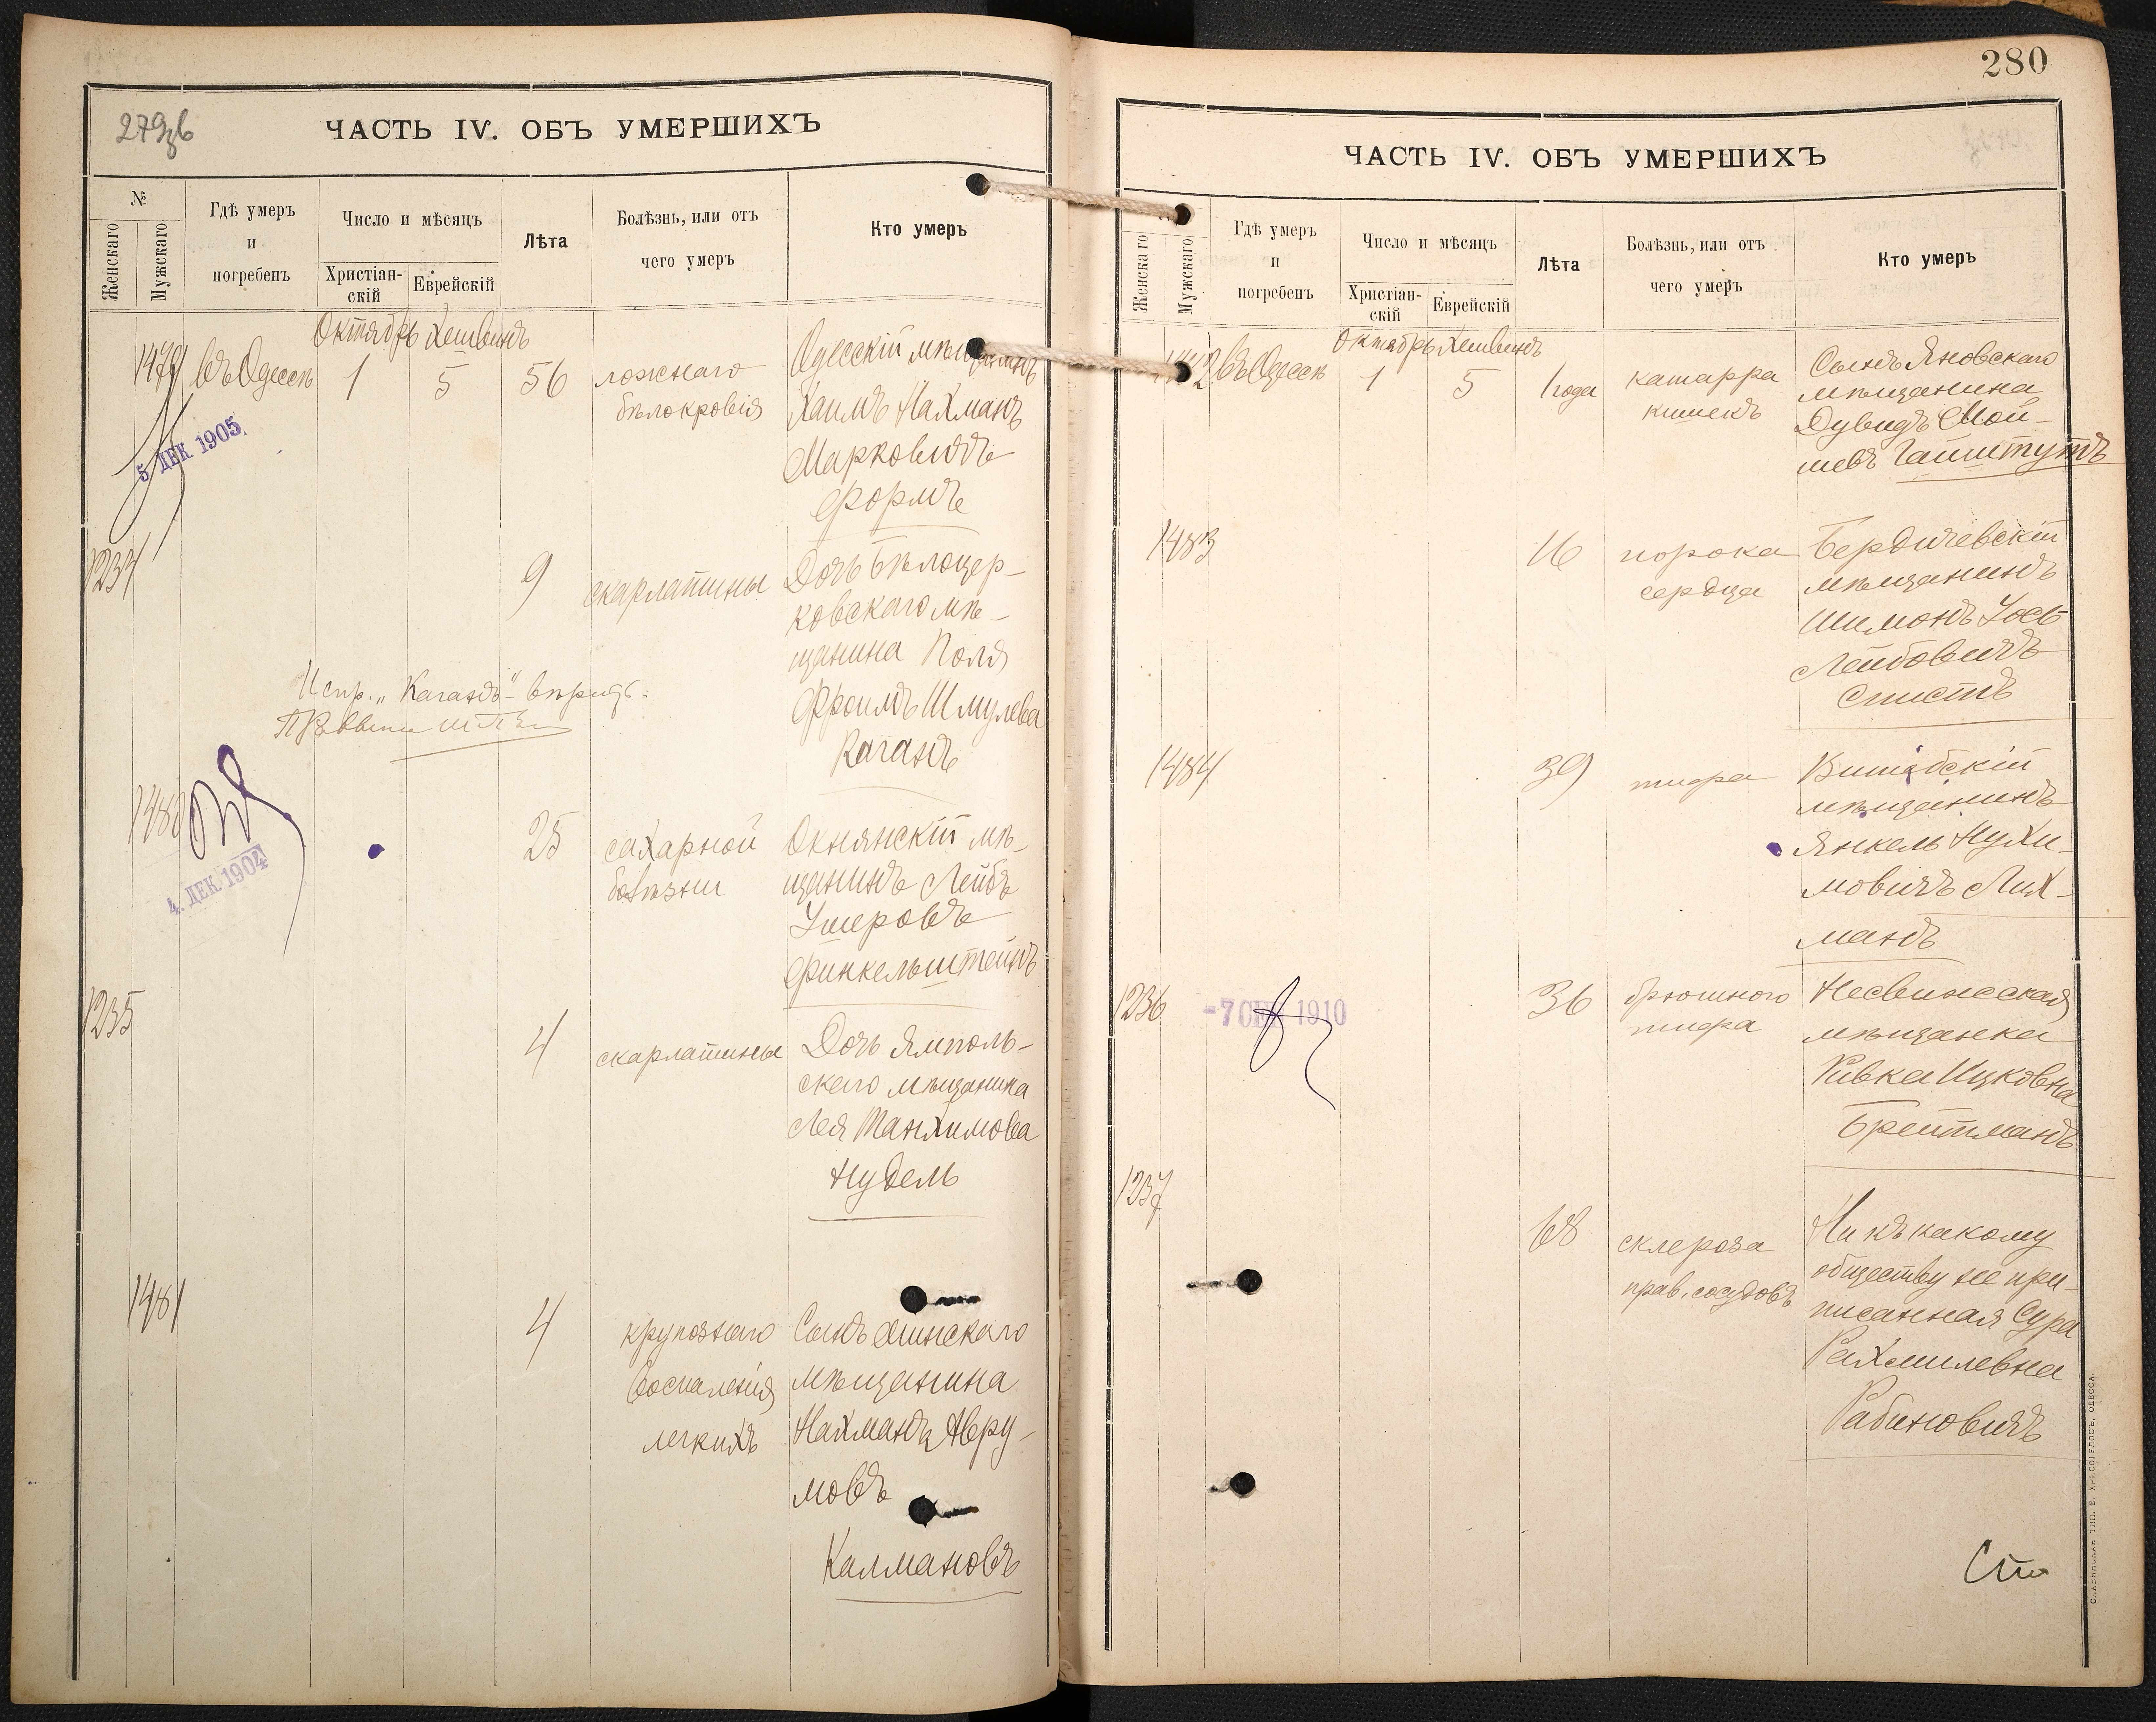 279 об
ЧАСТЬ IV. ОБЪ УМЕРШИХЪ
№
Женскаго
Мужскаго
Гдѣ умеръ
и
погребенъ
Число и мѣсяцъ
Христіан-
скій
Еврейскій
Лѣта
Болѣзнь, или отъ
чего умеръ
Кто умеръ
Октябрь Хешвинъ
1479 въ Одессѣ 1 5 56
ложнаго
бѣлокровія
Одесскій мѣщанинъ
Хаимъ Нахманъ
Марковичъ
Формъ
5 ДЕК 1905
1234
9
скарлатины
Дочь Бѣлоцер-
ковскаго мѣ-
щанина Поля
Фроимъ Шмулева
Каганъ
Испр. „Каганъ“ вѣрить.
1480
4. ДЕК 1904
25
сахарной
болѣзни
Окнянскій мѣ-
щанинъ Лейбъ
Ушеровъ
Финкельштейнъ
1235
4
скарлатины
Дочь Ямполь-
скаго мѣщанина
Лея Танхимова
Нудель
1481
4
крупознаго
воспаленія
легкихъ
Сынъ Минскаго
мѣщанина
Нахманъ Авру-
мовъ
Калмановъ
280
ЧАСТЬ IV. ОБЪ УМЕРШИХЪ
Женскаго
Мужскаго
Гдѣ умеръ
и
погребенъ
Число и мѣсяцъ
Христіан-
скій
Еврейскій
Лѣта
Болѣзнь, или отъ
чего умеръ
Кто умеръ
Октябрь Хешвинъ
1482 въ Одессѣ 1 5 1 года
катарра
кишекъ
Сынъ Яновскаго
мѣщанина
Дувидъ Мой-
шевъ Гамштутъ
1483
16
порока
сердца
Бердичевскій
мѣщанинъ
Шимонъ Іось
Лейбовичъ
Спистъ
1484
39
тифа
Витебскій
мѣщанинъ
Янкель Нухи-
мовичъ Лих-
манъ
1236
-7 СЕН 1910
36
брюшного
тифа
Несвижская
мѣщанка
Ривка Ицковна
Брейтманъ
1237
68
склероза
прав. сосудовъ
Ни къ какому
обществу не при-
писанная Сура
Рахмилевна
Рабиновичъ
СЛАВЯНСКАЯ ТИП. Е. ХРИСОГЕЛОСЪ, ОДЕССА.